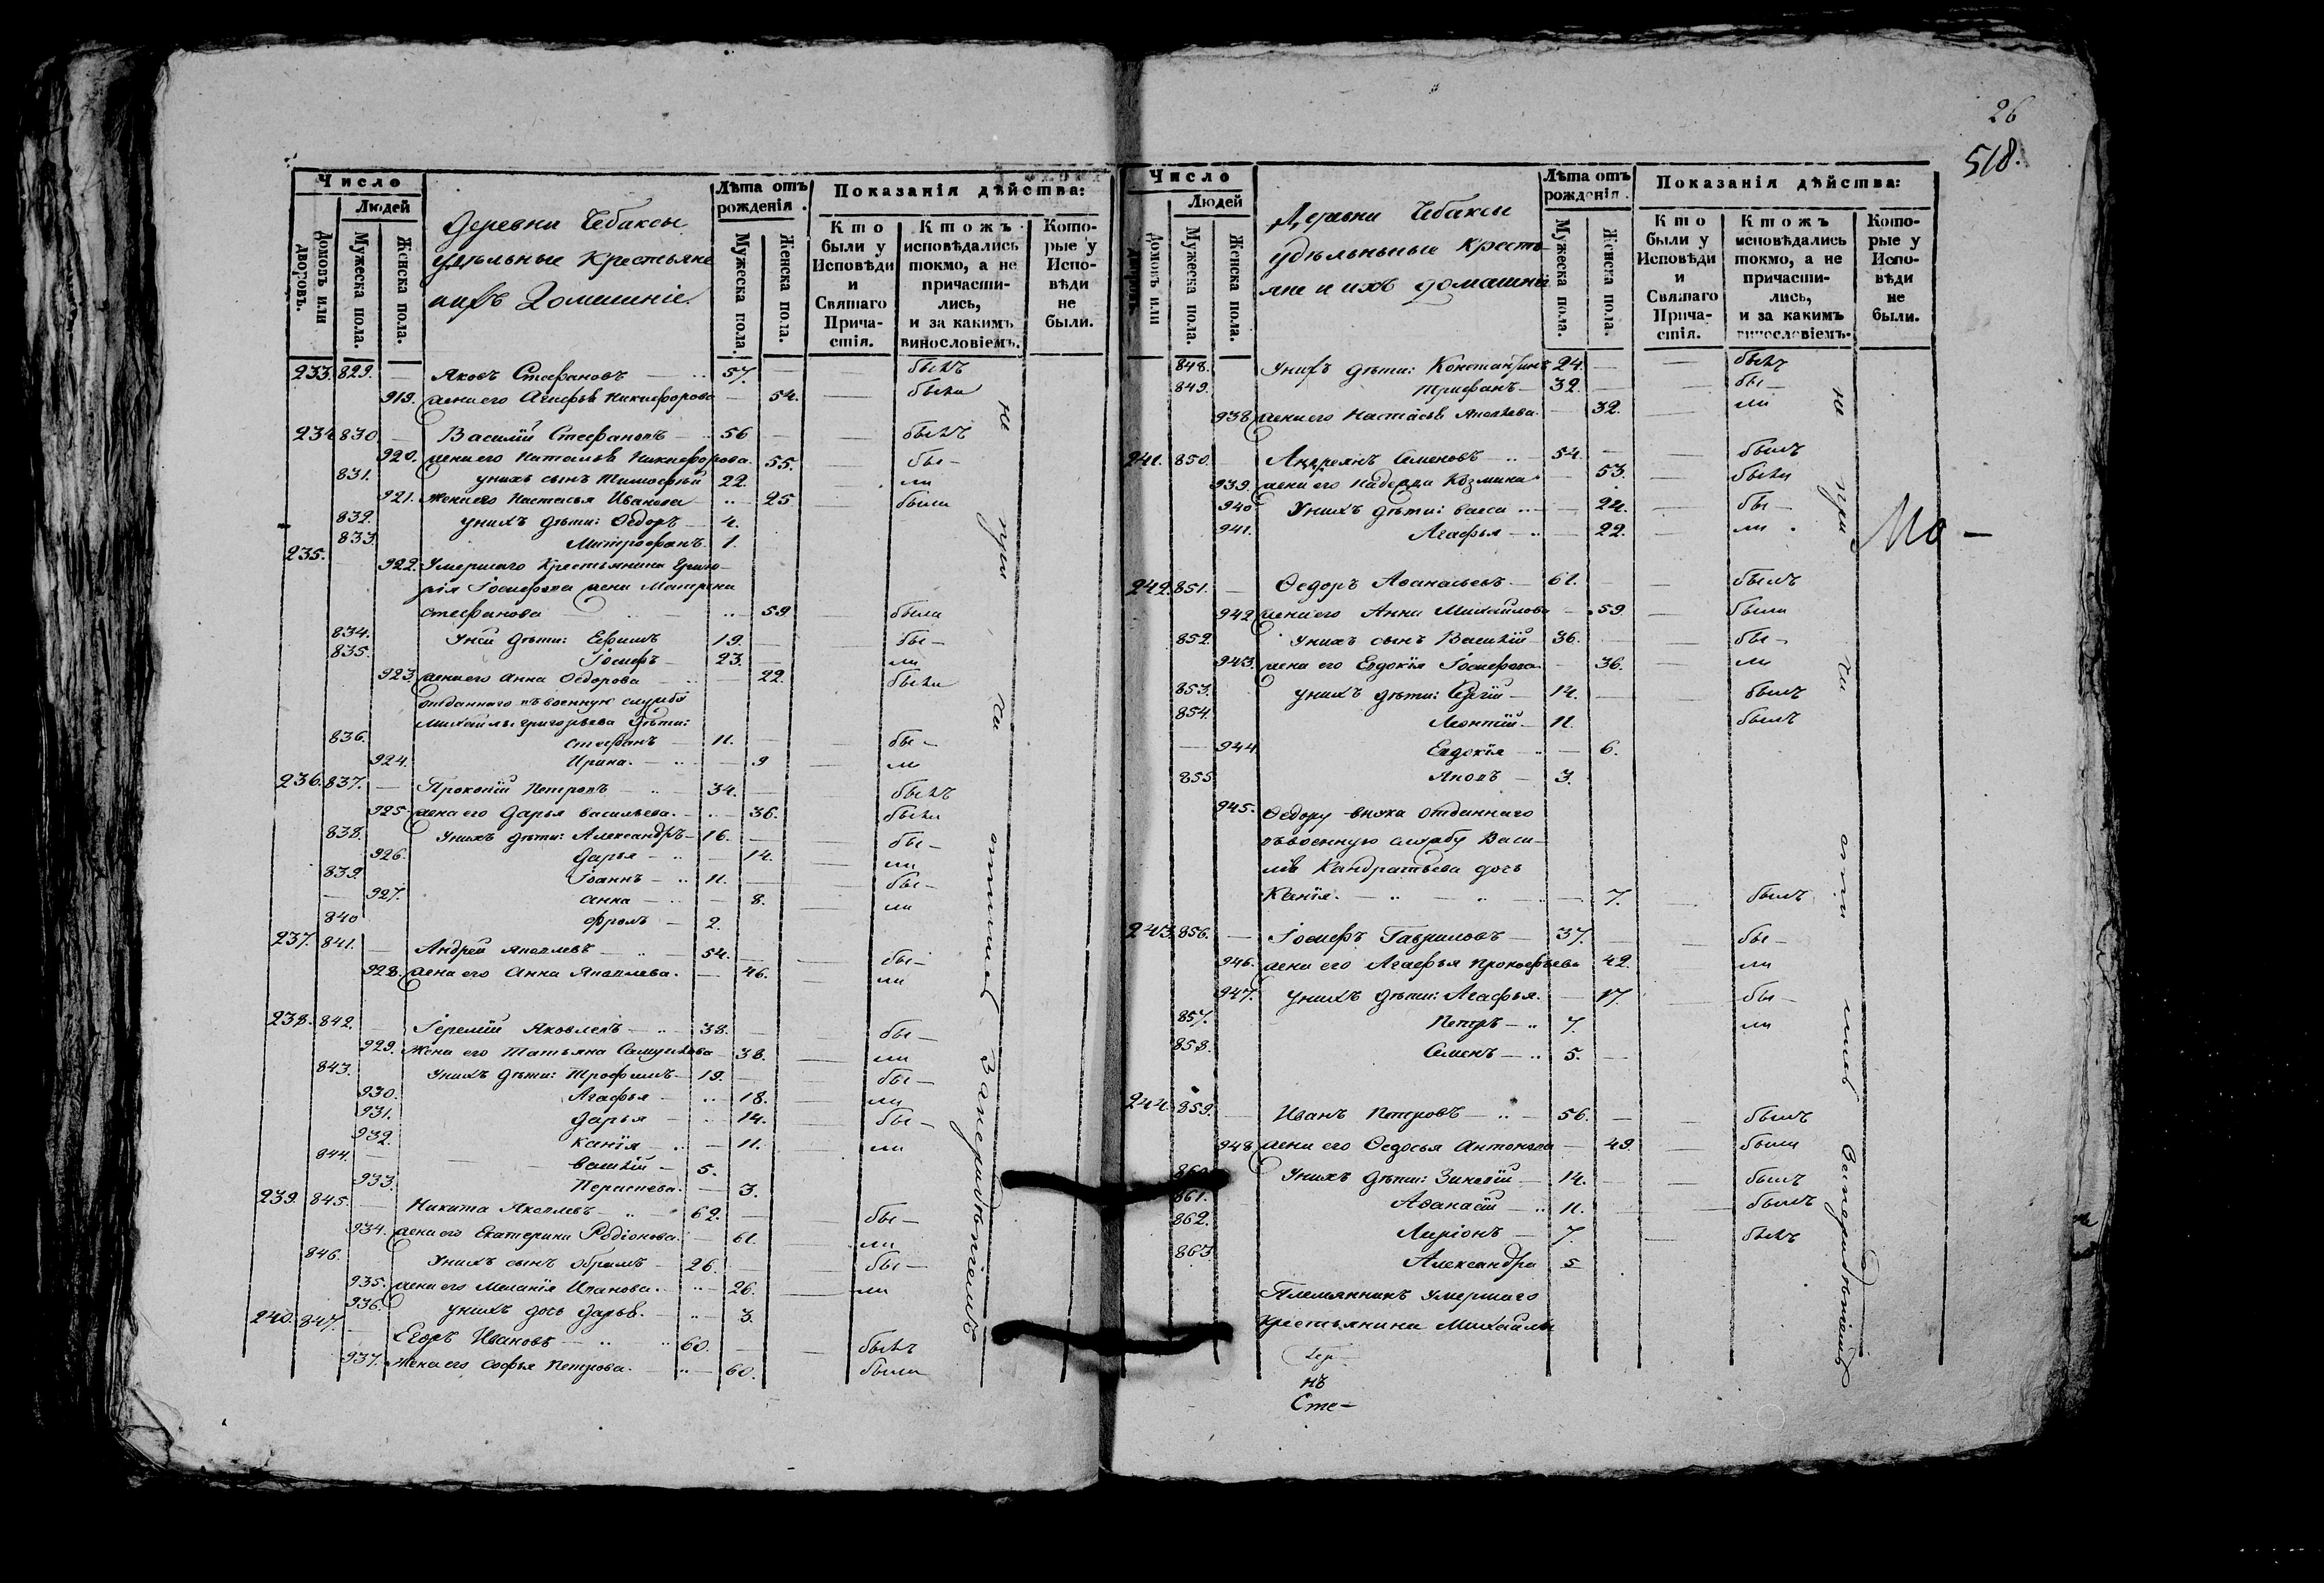 26
518.
Число
Людей
Домовъ или дворовъ.
Мужеска пола.
Женска пола.
Деревни Чебаксы
удѣльные Крестьяне
ихъ Домашніе.
Лѣта отъ рожденія.
Мужеска пола.
Женска пола.
Показанія дѣйства:
Кто были у Исповѣди и Святаго Причастія.
Ктожъ исповѣдались токмо, а не причастились, и за какимъ винословіемъ.
Которые у Исповѣди не были.
233. 829. Яковъ Стефановъ 57. былъ
919. жена его Агафья Никифорова 54. была
234 830 Василій Стефановъ 56 былъ
920. жена его Наталья Никифорова. 55. бы-
831. у нихъ сынъ Тимофей 22. ли
921. Жена его Настасья Иванова 25 была
832. у нихъ дѣти: Ѳедоръ 4.
833. Митрофанъ 1.
235. 922. Умершаго Крестьянина Григо-
рія Іосифова жена Матрена
Стефанова 59 была
834. У ней дѣти: Ефимъ 19. бы-
835. Іосифъ 23. ли
923. жена его Анна Ѳедорова 22. была
отданнаго въ военную службу
Михаилы Григорьева дѣти:
836. Стефанъ 11. бы-
924. Ирина. 9 ли
236. 837. Прокопій Петровъ 34. былъ
925. жена его Дарья Васильева. 36. была
838. У нихъ дѣти: Александръ 16. бы-
926. Дарья 14. ли
839. Іоаннъ 11. бы-
927. Анна 8. ли
840 Фролъ 2.
237. 841. Андрей Яковлевъ 54. бы-
928. жена его Анна Яковлева. 46. ли
238. 842. Іеремій Яковлевъ 38. бы-
929. Жена его Татьяна Самуилова 38. ли
843. У нихъ дѣти: Трофимъ 19. бы-
930. Агафья 18. ли
931. Дарья 14. бы-
932. Ксенія 11. ли
844. Василій 5.
933. Параскева. 3.
239. 845. Никита Яковлевъ 62. бы-
934. жена его Екатерина Родіонова 61. ли
846. У нихъ сынъ Абрамъ 26. бы-
935. жена его Меланія Иванова. 26. ли
936. у нихъ дочь Дарья. 3.
240. 847. Егоръ Ивановъ 60. былъ
937. Жена его Софья Петрова. 60. была
Число
Людей
Домовъ или дворовъ
Мужеска пола.
Женска пола.
Деревни Чебаксы
удѣльныые Кресть-
яне и ихъ домашніе
Лѣта отъ рожденія.
Мужеска пола.
Женска пола.
Показанія дѣйства:
Кто были у Исповѣди и Святаго Причастія.
Ктожъ исповѣдались токмо, а не причастились, и за какимъ винословіемъ.
Которые у Исповѣди не были.
848. У нихъ дѣти: Константинъ 24. былъ
849. Трифанъ 32. бы-
938 жена его Настасья Яковлева. 32. ли
241. 850. Андреянъ Семеновъ 54. былъ
939. жена его Надежда Козмина 53. была
940 У нихъ дѣти: Васса 24. бы-
941. Агафья 22. ли
242. 851. Ѳедоръ Аѳанасьевъ 61. былъ
942 жена его Анна Михаилова 59 была
852. У нихъ сынъ Василій 36. бы-
943. жена его Евдокія Іосифова 36. ли
853. у нихъ дѣти: Сергій 14. былъ
854. Леонтій 11. былъ
944 Евдокія 6.
855 Яковъ 3.
945. Ѳедору внука отданнаго
въ военную службу Васи-
лія Кандратьева дочь
Ксенія. 7. былъ
243. 856. Іосифъ Гавриловъ 37. бы-
946. жена его Агафья Прокофьева 42. ли
947. у нихъ дѣти: Агафья. 17. бы-
857. Петръ 7. ли
858. Семенъ 5.
244. 859. Иванъ Петровъ 56. былъ
948 жена его Ѳедосья Антонова 49. была
860 У нихъ дѣти: Зиновій 14. былъ
861. Аѳанасій 11. былъ
862. Ларіонъ 7. былъ
863 Александра 5
Племянникъ умершаго
крестьянина Михаилы
Сте-
не при ча стились
не при ча стились
Мо-